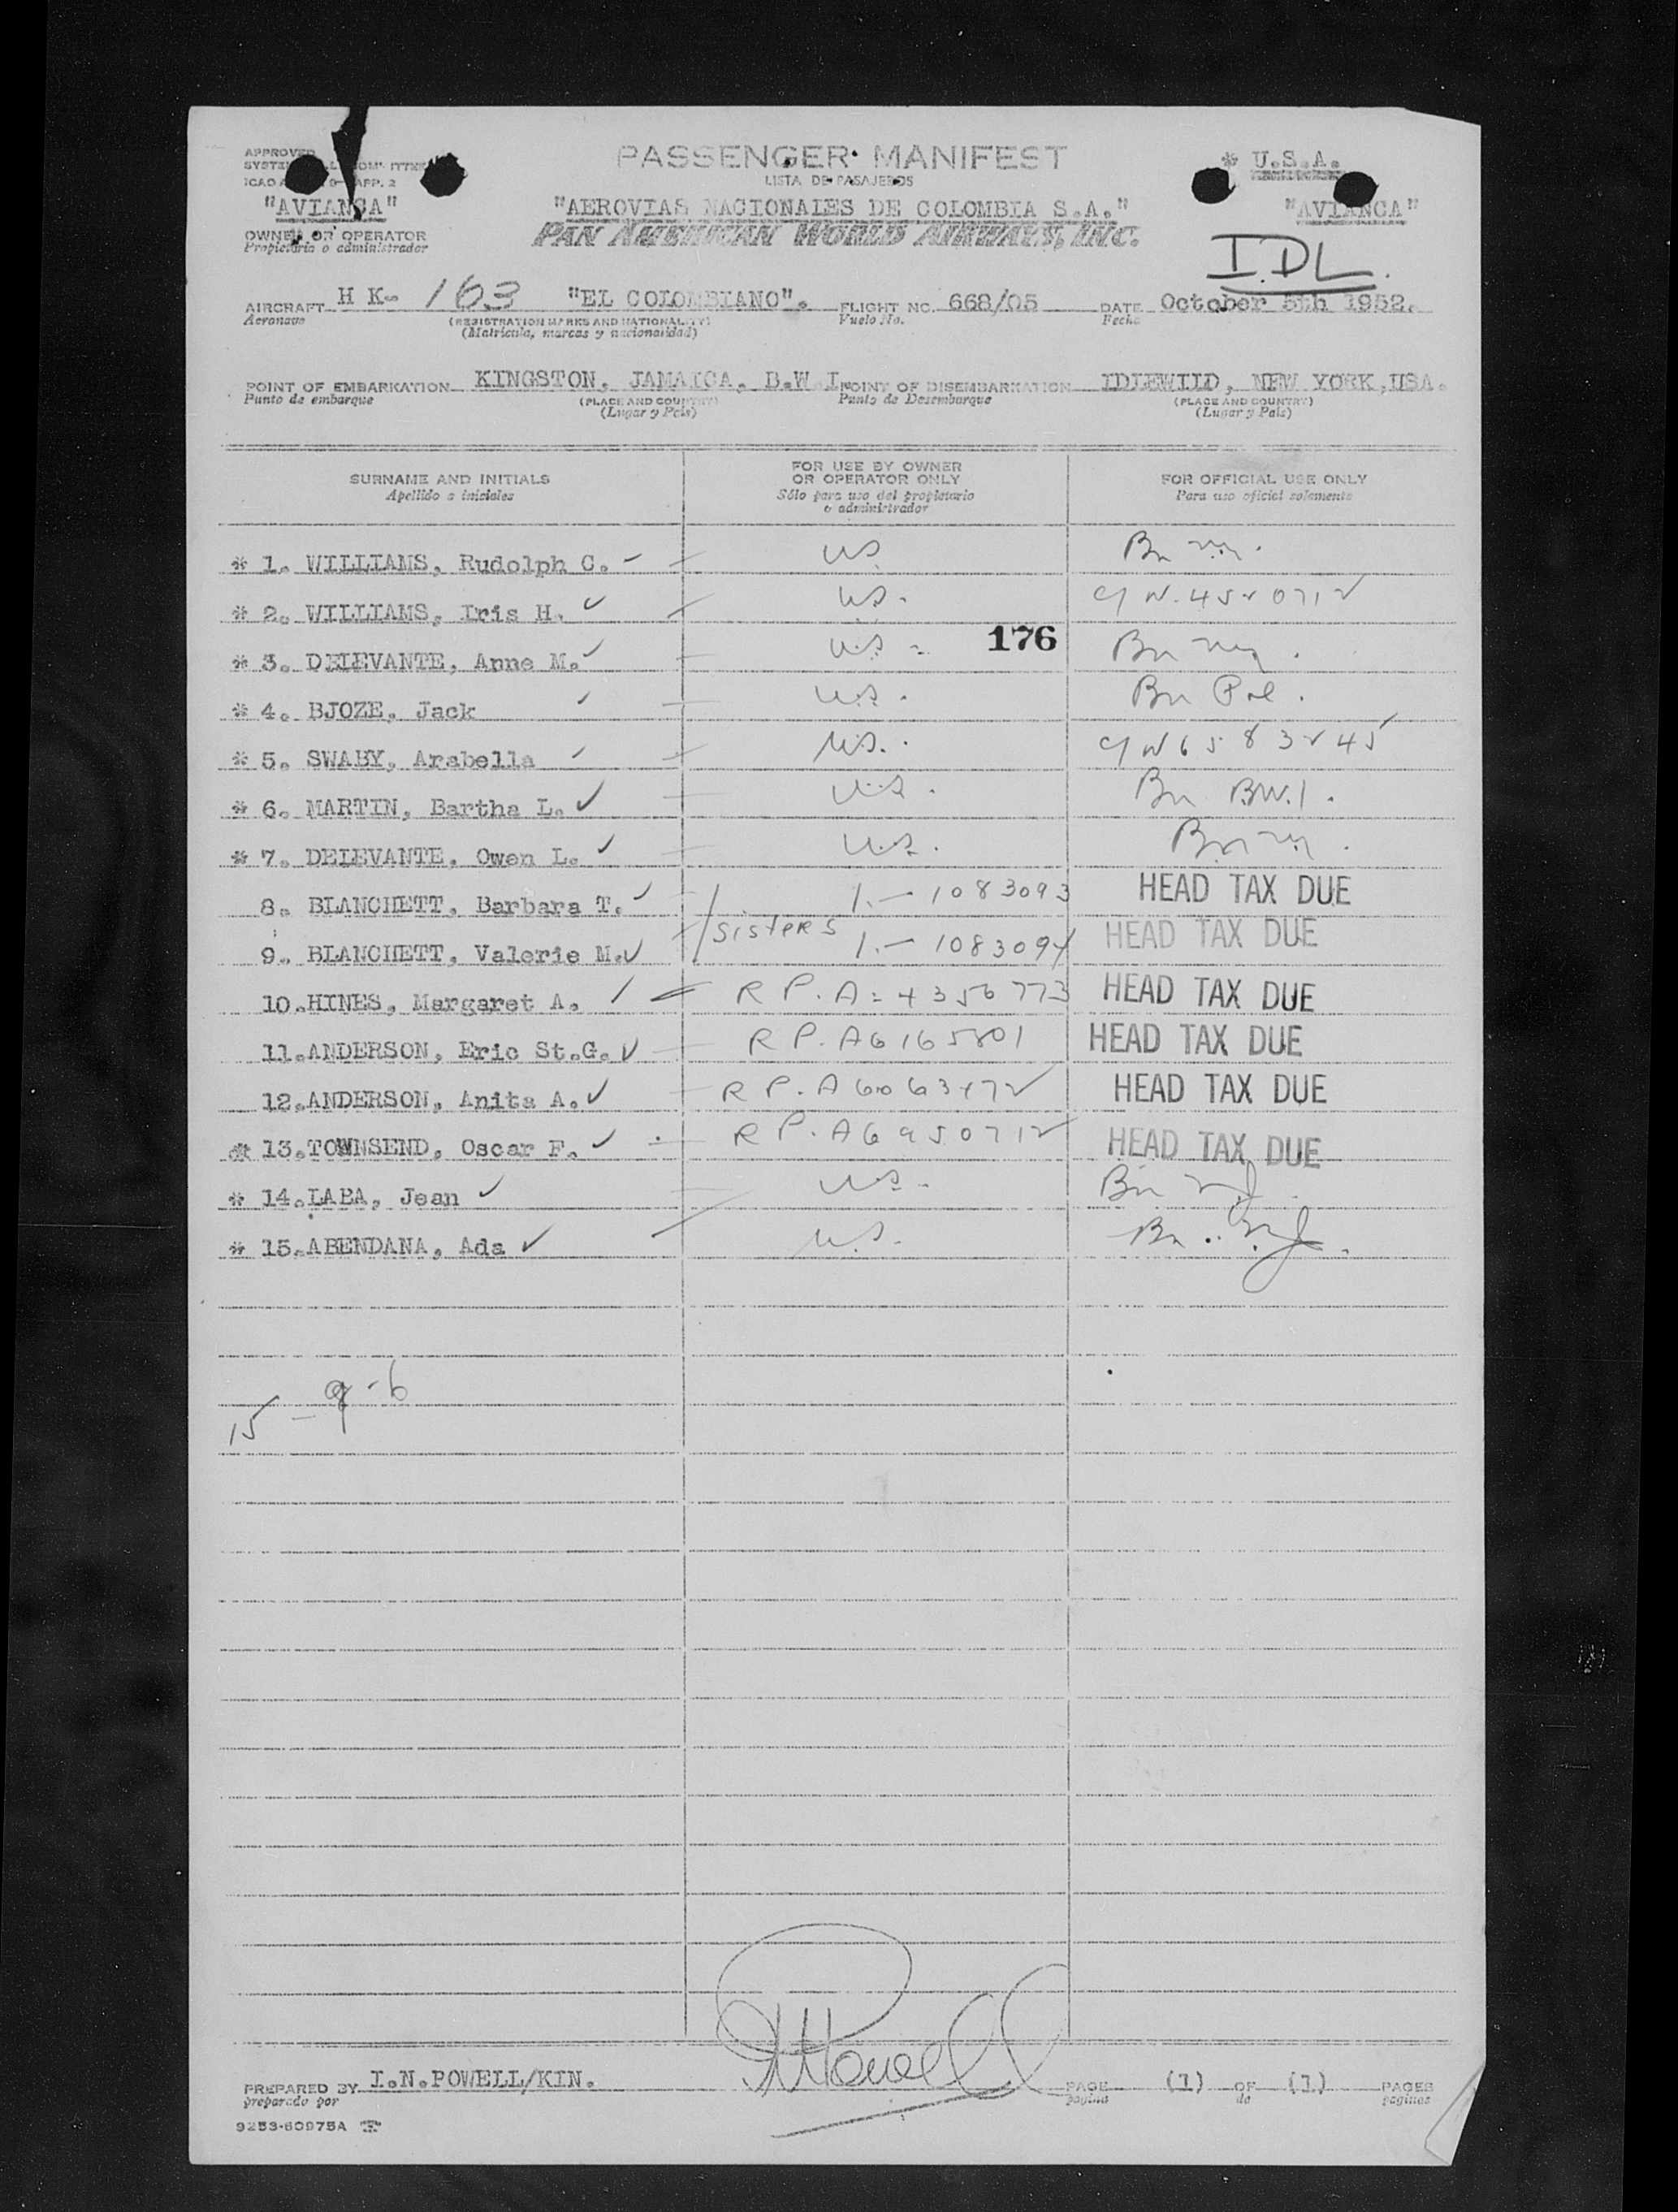 PASSENGER MANIFEST
LISTA DE PASAJEROS
* U.S.A.
APPROVED
"AVIANCA" "AEROVIAS NACIONALES DE COLOMBIA S.A." "AVIANCA"
OWNER OR OPERATOR PAN AMERICAN WORLD AIRWAYS, INC.
Propietario o administrador
IDL.
AIRCRAFT H K- 163 "EL COLOMBIANO". FLIGHT NO. 668/05 DATE October 5th 1952.
Aeronave (REGISTRATION MARKS AND NATIONALITY) Vuelo No. Fecha
(Matricula, marcas y nacionalidad)
POINT OF EMBARKATION KINGSTON, JAMAICA, B.W.I. POINT OF DISEMBARKATION IDLEWILD, NEW YORK, USA.
Punto de embarque (PLACE AND COUNTRY) Punto de Desembarque (PLACE AND COUNTRY)
(Lugar y País) (Lugar y País)
SURNAME AND INITIALS FOR USE BY OWNER OR OPERATOR ONLY FOR OFFICIAL USE ONLY
Apellido e iniciales Sólo para uso del propietario o administrador Para uso oficial solamente
* 1. WILLIAMS, Rudolph C. US. Bn NY.
* 2. WILLIAMS, Iris H. U.S. C/N.4520712
176
* 3. DELEVANTE, Anne M. U.S. Bn NY.
* 4. BJOZE, Jack U.S. Bn Pol.
* 5. SWABY, Arabella U.S. C/N 6583245
* 6. MARTIN, Bartha L. U.S. Bn B.W.I.
* 7. DELEVANTE, Owen L. U.S. Bn NY.
8. BLANCHETT, Barbara T. 1.-1083093 HEAD TAX DUE
sisters
9. BLANCHETT, Valerie M. 1.-1083094 HEAD TAX DUE
10. HINES, Margaret A. R P. A=4356773 HEAD TAX DUE
11. ANDERSON, Eric St.G. R P. A6165801 HEAD TAX DUE
12. ANDERSON, Anita A. R P. A6063472 HEAD TAX DUE
* 13. TOWNSEND, Oscar F. R P. A6950712 HEAD TAX DUE
* 14. LABA, Jean U.S. Bn NJ.
* 15. ABENDANA, Ada U.S. Bn. NJ.
15 - 9 - 6
PREPARED BY I.N.POWELL/KIN. Powell PAGE (1) OF (1) PAGES
preparado por pagina de paginas
9253-60975A